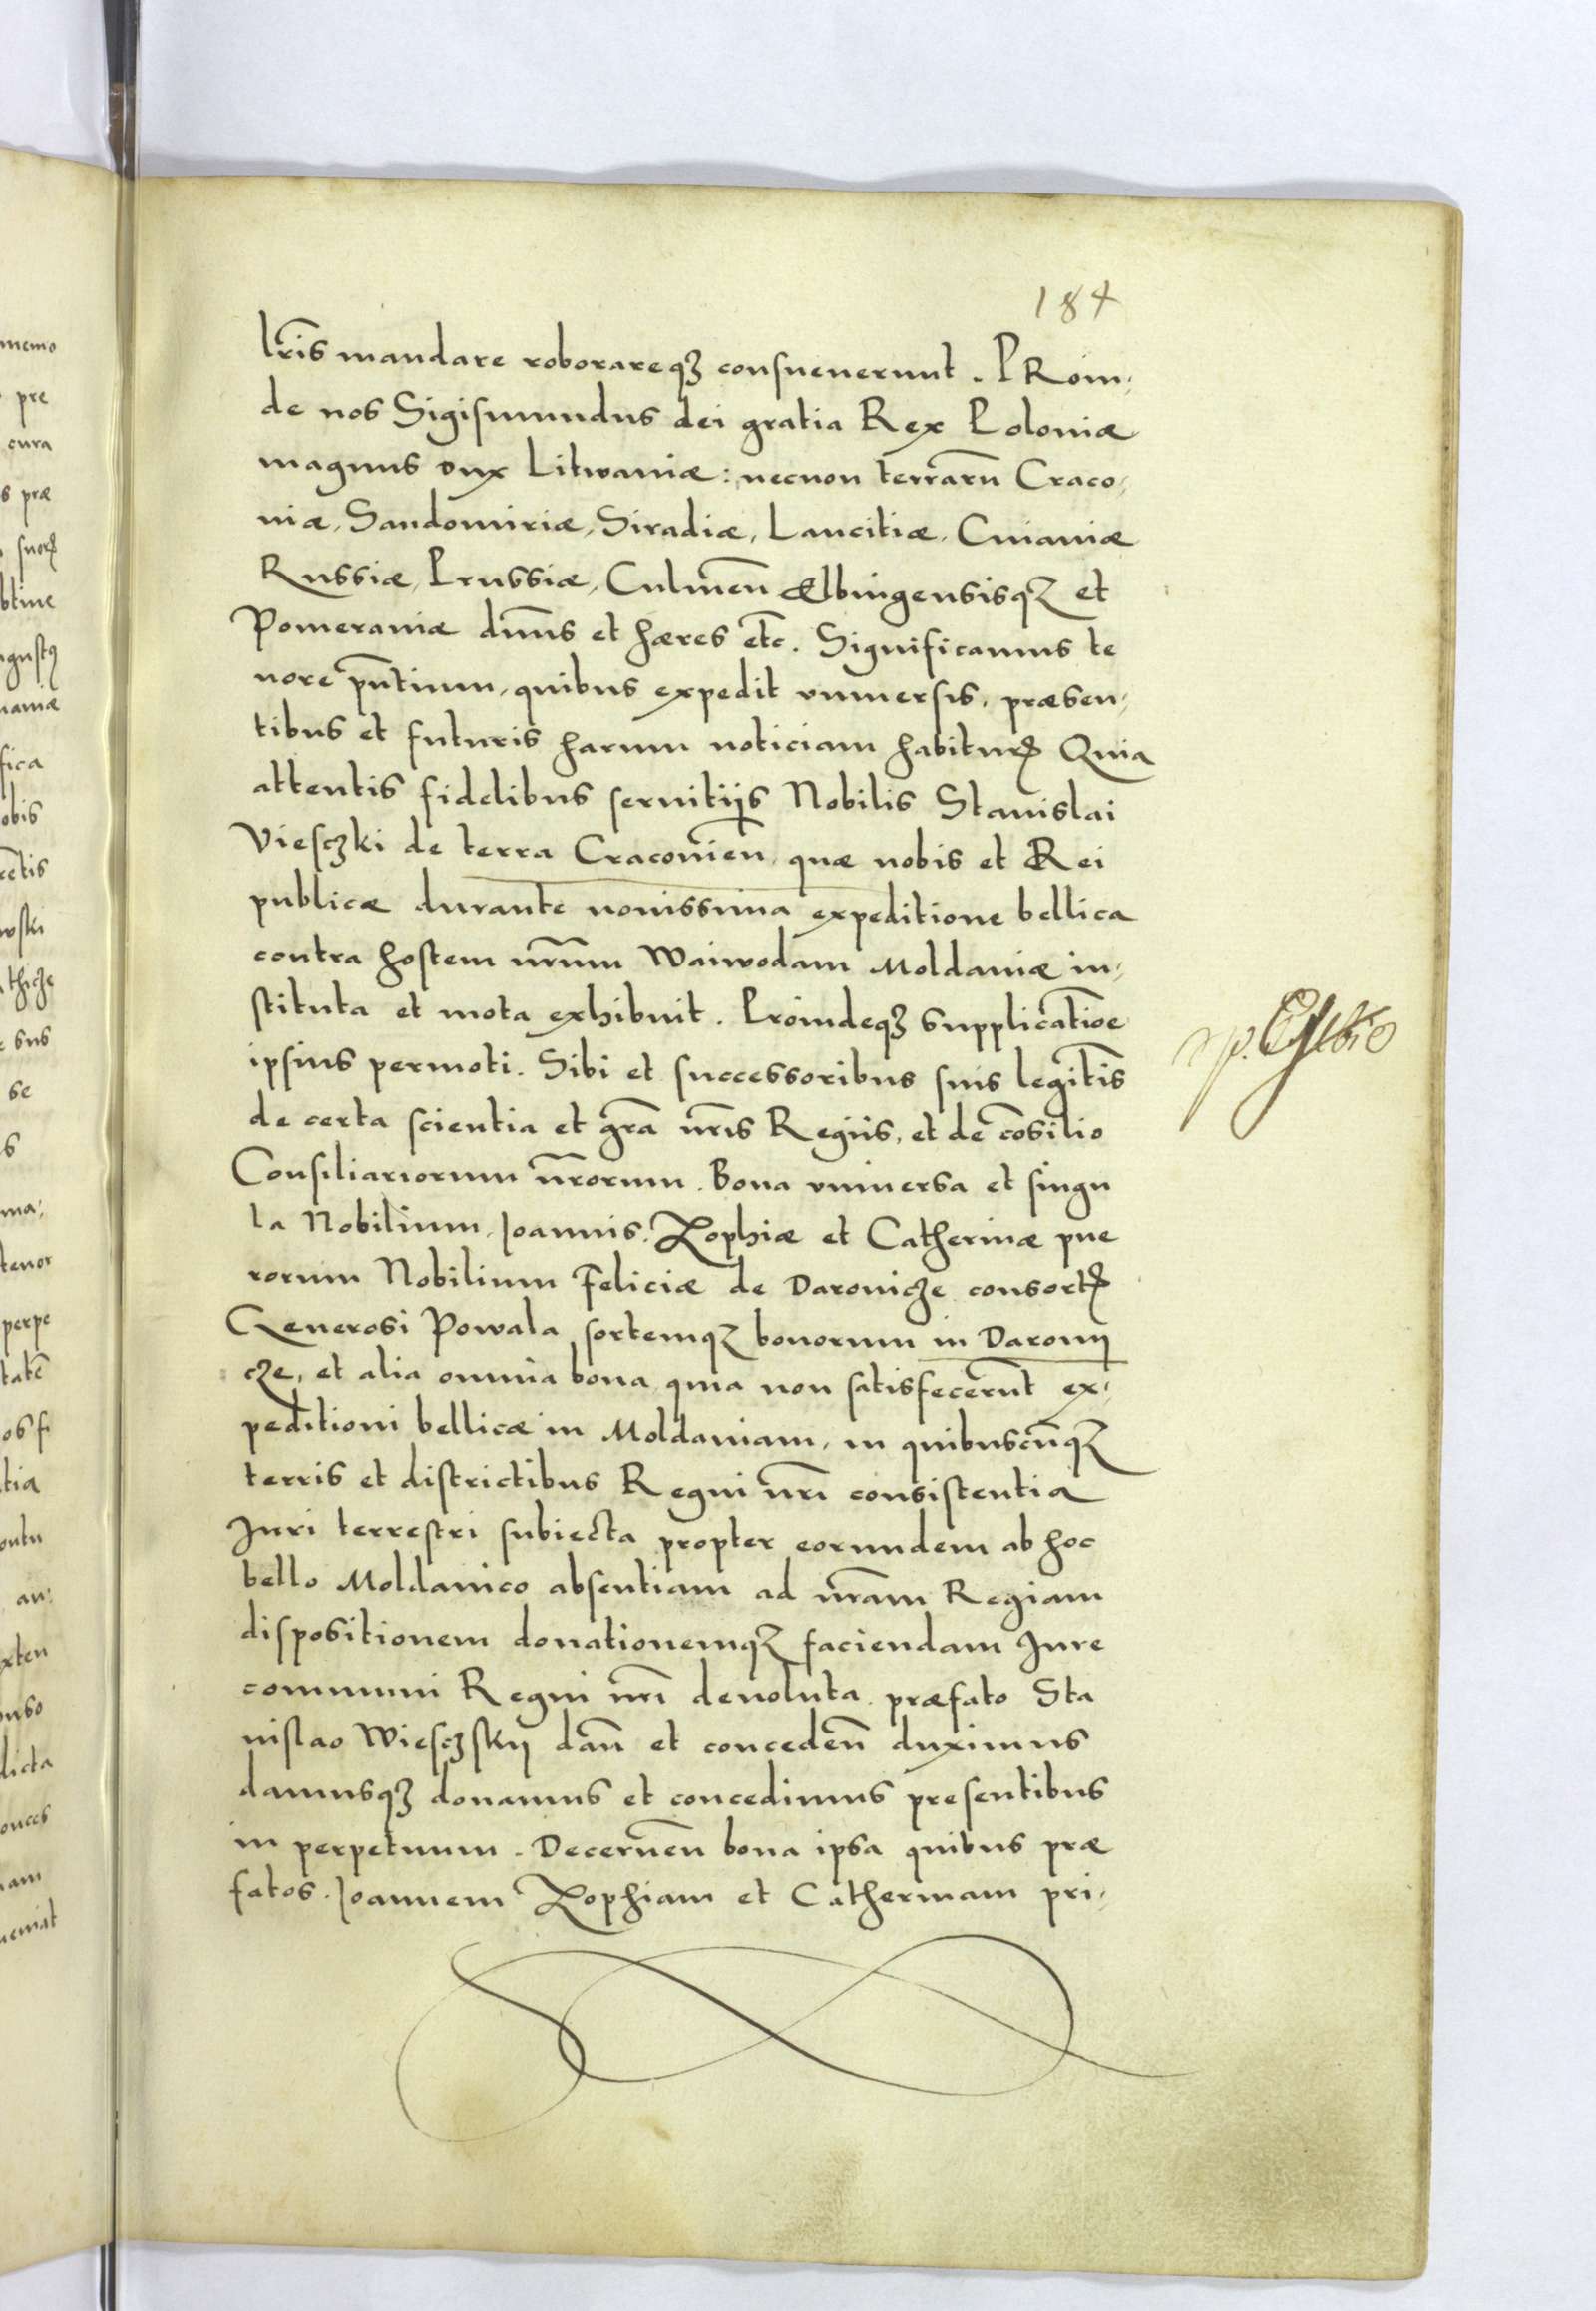 184
lris mandare roborareqꝫ consueuerunt. PRoin,
de nos Sigismundus dei gratia Rex Poloniæ
magnus dux Litwaniæ: necnon terrarū Craco,
niæ, Sandomiriæ, Siradiæ, Lancitiæ, Cuiauiæ
Russiæ, Prussiæ, Culmeñ Elbingensisqꝫ et
Pomeraniæ dn̄us et hæres etc. Significamus te
nore pn̄tium, quibus expedit vniuersis, præsen,
tibus et futuris harum noticiam habiturꝭ Quia
attentis fidelibus seruitijs Nobilis Stanislai
Viesczki de terra Cracouien̄ quæ nobis et Rei
publicæ durante nouissima expeditione bellica
contra hostem nr̄um Waiwodam Moldauiæ in,
stituta et mota exhibuit. Proindeqꝫ supplicatioē
ipsius permoti. Sibi et successoribus suis legitīs
de certa scientia et gr̄a nr̄is Regijs, et de cōsilio
Consiliariorum nr̄orum. Bona vniuersa et singu
la Nobilium, Joannis, Zophiæ et Catherinæ pue
rorum Nobilium Feliciæ de Daronicze consortꝭ
Generosi Powala sortemqꝫ bonorum in Daronij
cze, et alia omnia bona quia non satisfecerūt ex,
peditioni bellicæ in Moldauiam, in quibuscūqꝫ
terris et districtibus Regni nr̄i consistentia
Juri terrestri subiecta propter eorundem ab hoc
bello Moldauico absentiam ad nr̄am Regiam
dispositionem donationemqꝫ faciendam Jure
communi Regni nr̄i deuoluta. præfato Sta
nislao Wiesczskij dan̄ et conceden̄ duximus
damusqꝫ donamus et concedimus presentibus
in perpetuum. Decernen̄ bona ipsa quibus præ
fatos. Joannem Zophiam et Catherinam pri,